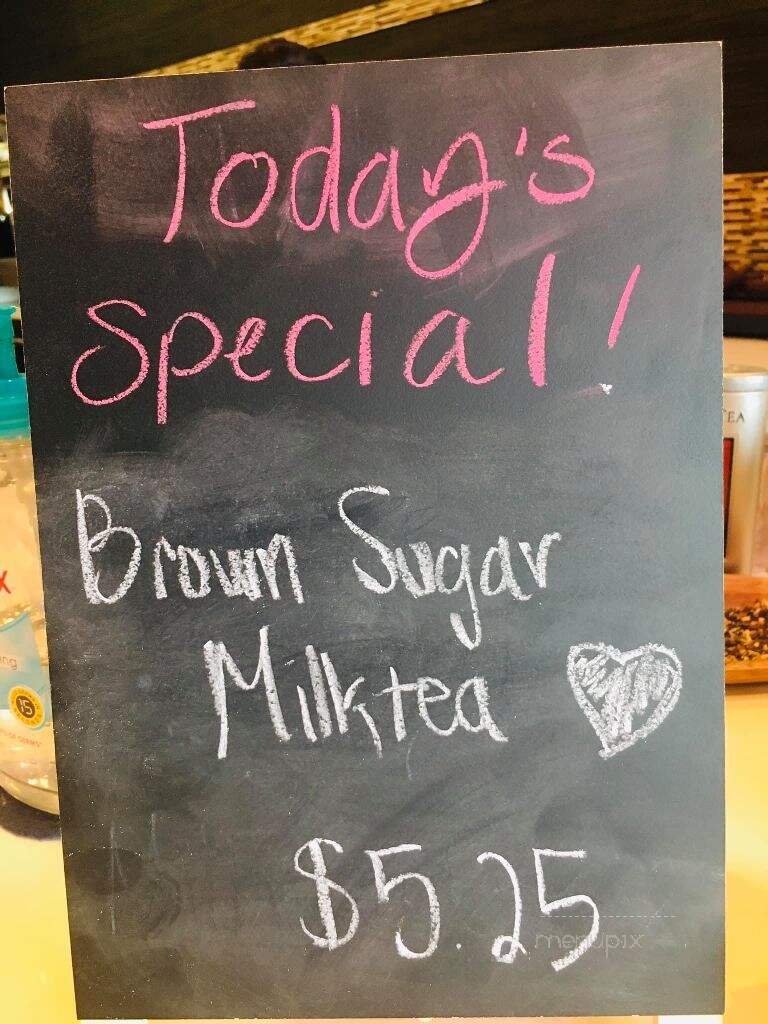 Today's
Special!
Brown Sugar
Milktea
$5.25
menupix
TEA
15